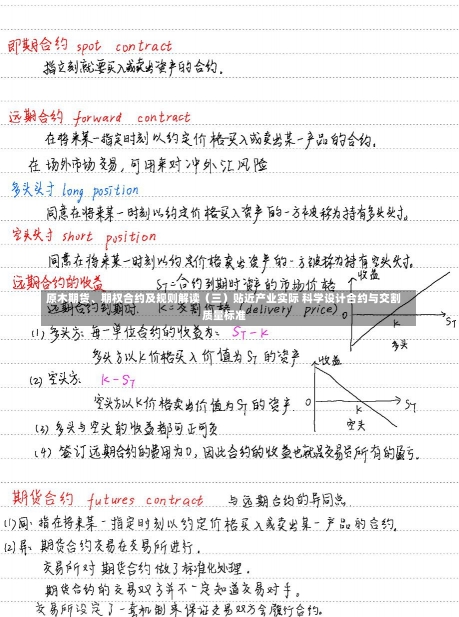 即期合约 spot contract
指立刻就要买入或卖出资产的合约.
远期合约 forward contract
在将来某一指定时刻以约定价格买入或卖出某一产品的合约.
在场外市场交易,可用来对冲外汇风险
多头头寸 long position
同意在将来某一时刻以约定价格买入资产的一方被称为持有多头头寸.
空头头寸 short position
同意在将来某一时刻以约定价格卖出资产的一方被称为持有空头头寸.
远期合约的收益 ST=合约到期时资产的市场价格
原木期货、期权合约及规则解读(三)贴近产业实际 科学设计合约与交割
质量标准
远期合约到期时. K=交割价格(delivery price)
(1) 多头方:每一单位合约的收益为: ST-K
多头方以K价格买入价值为ST的资产
收益
0
K
ST
多头
(2) 空头方: K-ST
空头方以K价格卖出价值为ST的资产.
收益
0
K
ST
空头
(3) 多头与空头的收益都可正可负
(4) 签订远期合约的费用为0,因此合约的收益也就是交易员所有的盈亏.
期货合约 futures contract 与远期合约的异同点
(1)同:指在将来某一指定时刻以约定价格买入或卖出某一产品的合约.
(2)异:期货合约交易在交易所进行.
交易所对期货合约做了标准化处理.
期货合约的交易双方并不一定知道交易对手.
交易所设定了一套机制来保证交易双方会履行合约.